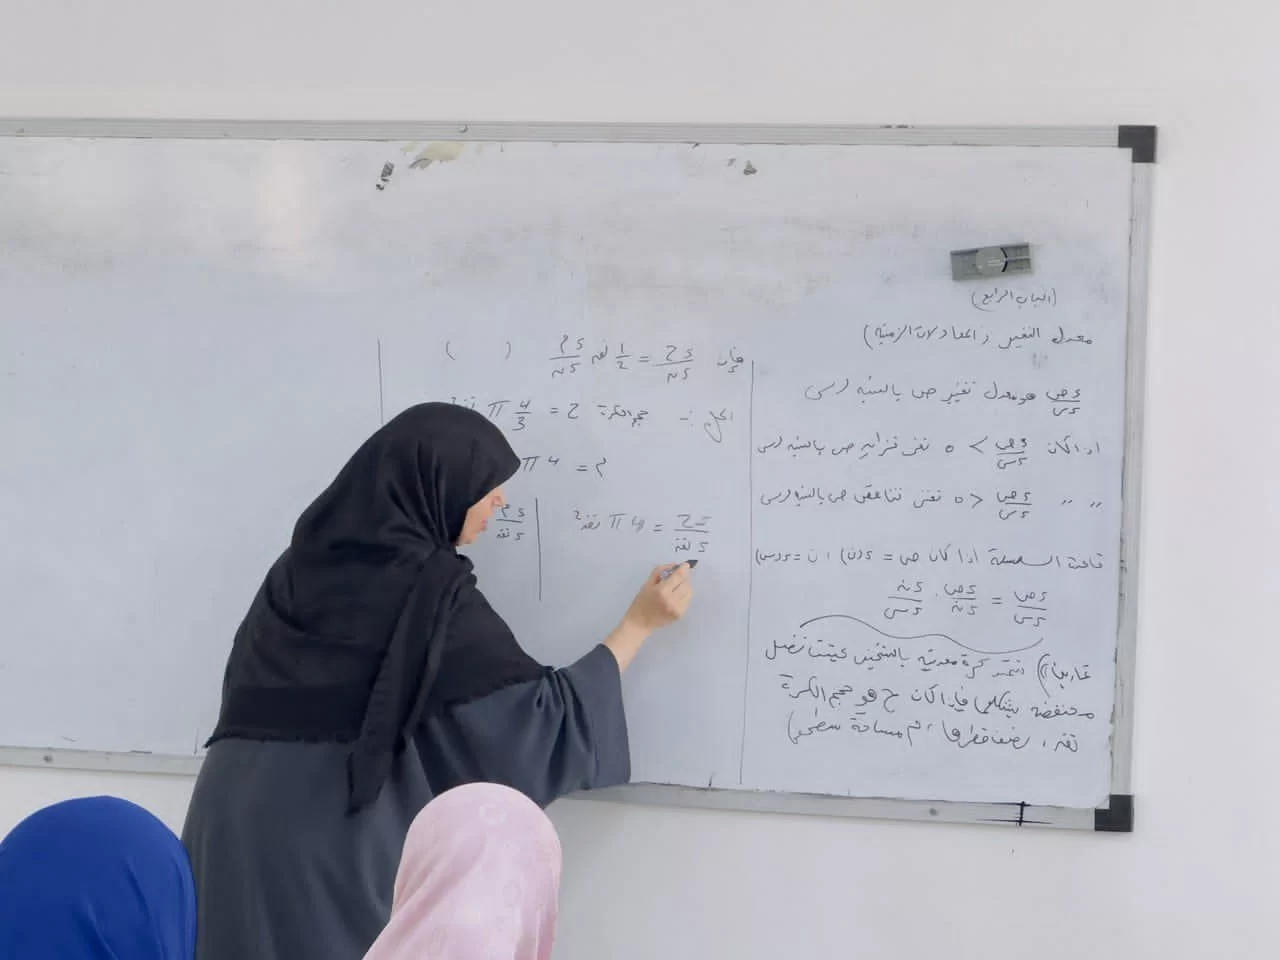 (الباب الرابع)
معدل التغير (المعادلات الزمنية)
ءص/ءس هو معدل تغير ص بالنسبة لـ س
اذا كان ءص/ءس > 0 تعني تزايد ص بالنسبة لـ س
،، ،، ءص/ءس < 0 تعني تناقص ص بالنسبة لـ س
قاعدة السلسلة اذا كان ص = د(ن) ، ن = د(س)
ءص/ءس = ءص/ءن . ءن/ءس
تمدد كرة معدنية بالتسخين بحيث تظل
محتفظة بشكلها فإذا كان ح هو حجم الكرة
نق ، نصف قطرها ، م مساحة سطحها
فإن ءح/ءن = 1/2 نق ءم/ءن ( )
الحل :- حجم الكرة ح = 4/3 π نق
م = 4 π
ءح/ءنق = 4 π نق²
ءم/ءنق